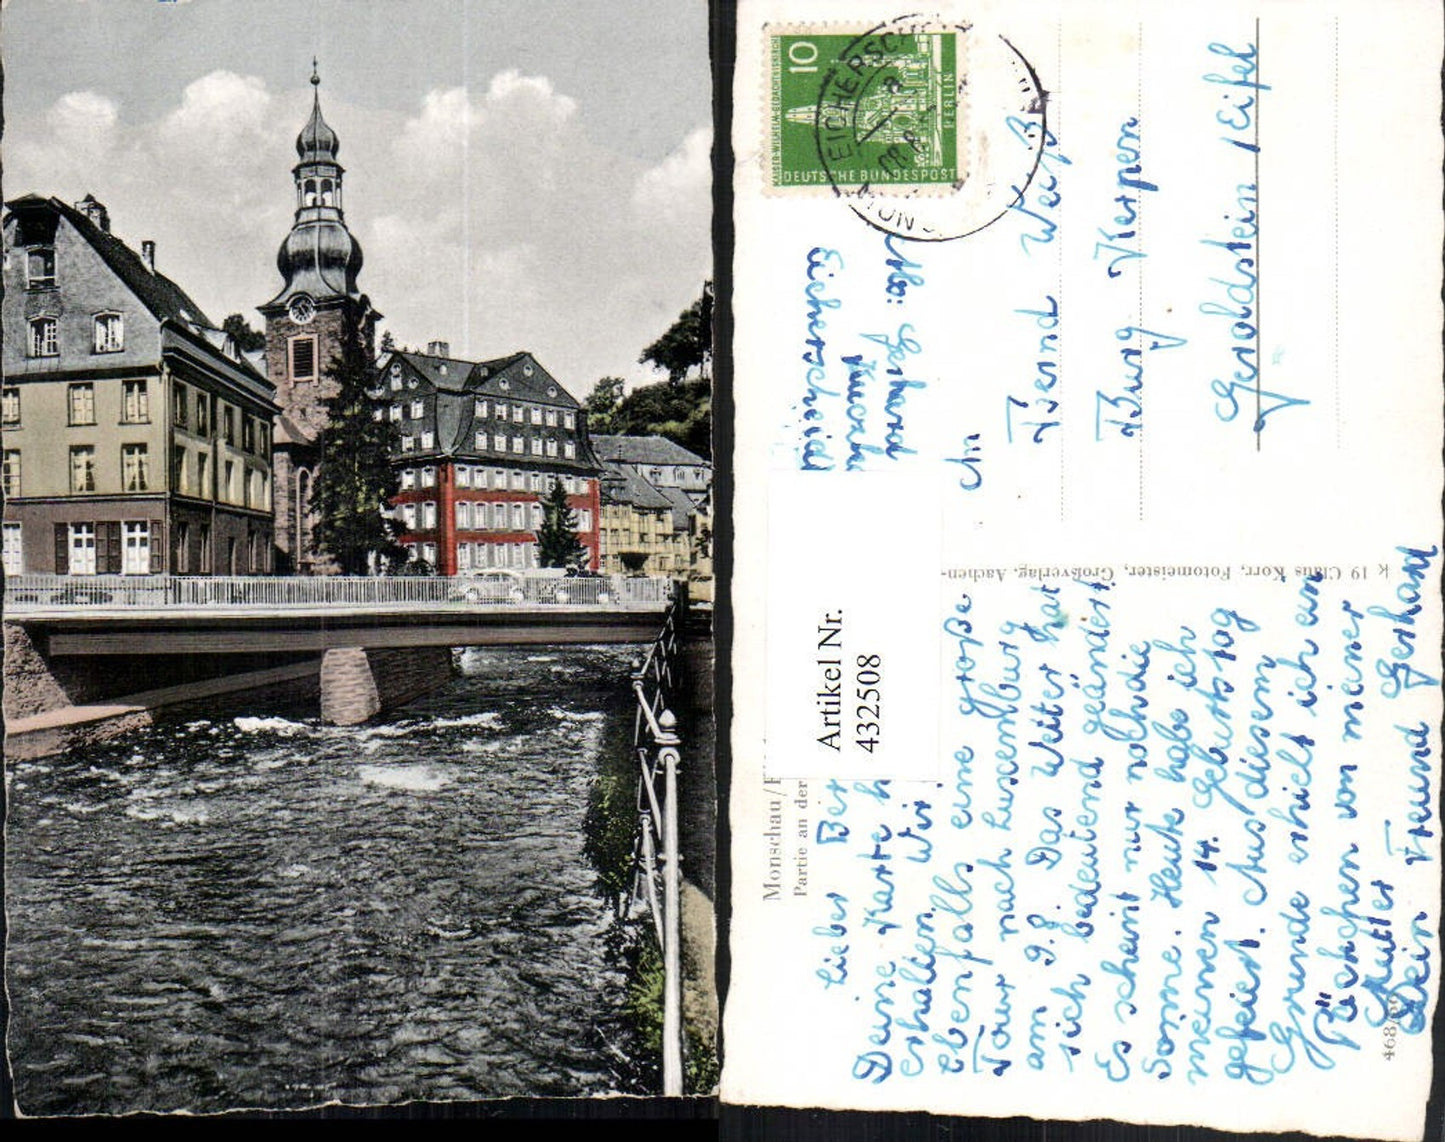 Monschau/E
Partie an der
Lieber Ber
Deine Karte h
erhalten. Wir
ebenfalls eine große
Tour nach Luxemburg
am 9.8. Das Wetter hat
sich bedeutend geändert
Es scheint nur noch die
Sonne. Heute habe ich
meinen 14. Geburtstag
gefeiert. Aus diesem
Grunde erhielt ich ein
von meiner
Mutter
Dein Freund Gerhard
468/
K 19 Claus Korr, Fotomeister, Großverlag, Aachen-
Artikel Nr.
432508
Abs: Gerhard
Eicherscheid
An
Bernd Weiß
Burg Kerpen
Gerolstein Eifel
10
KAISER-WILHELM-GEDÄCHTNISKIRCHE
BERLIN
DEUTSCHE BUNDESPOST
EICHERSCH
a